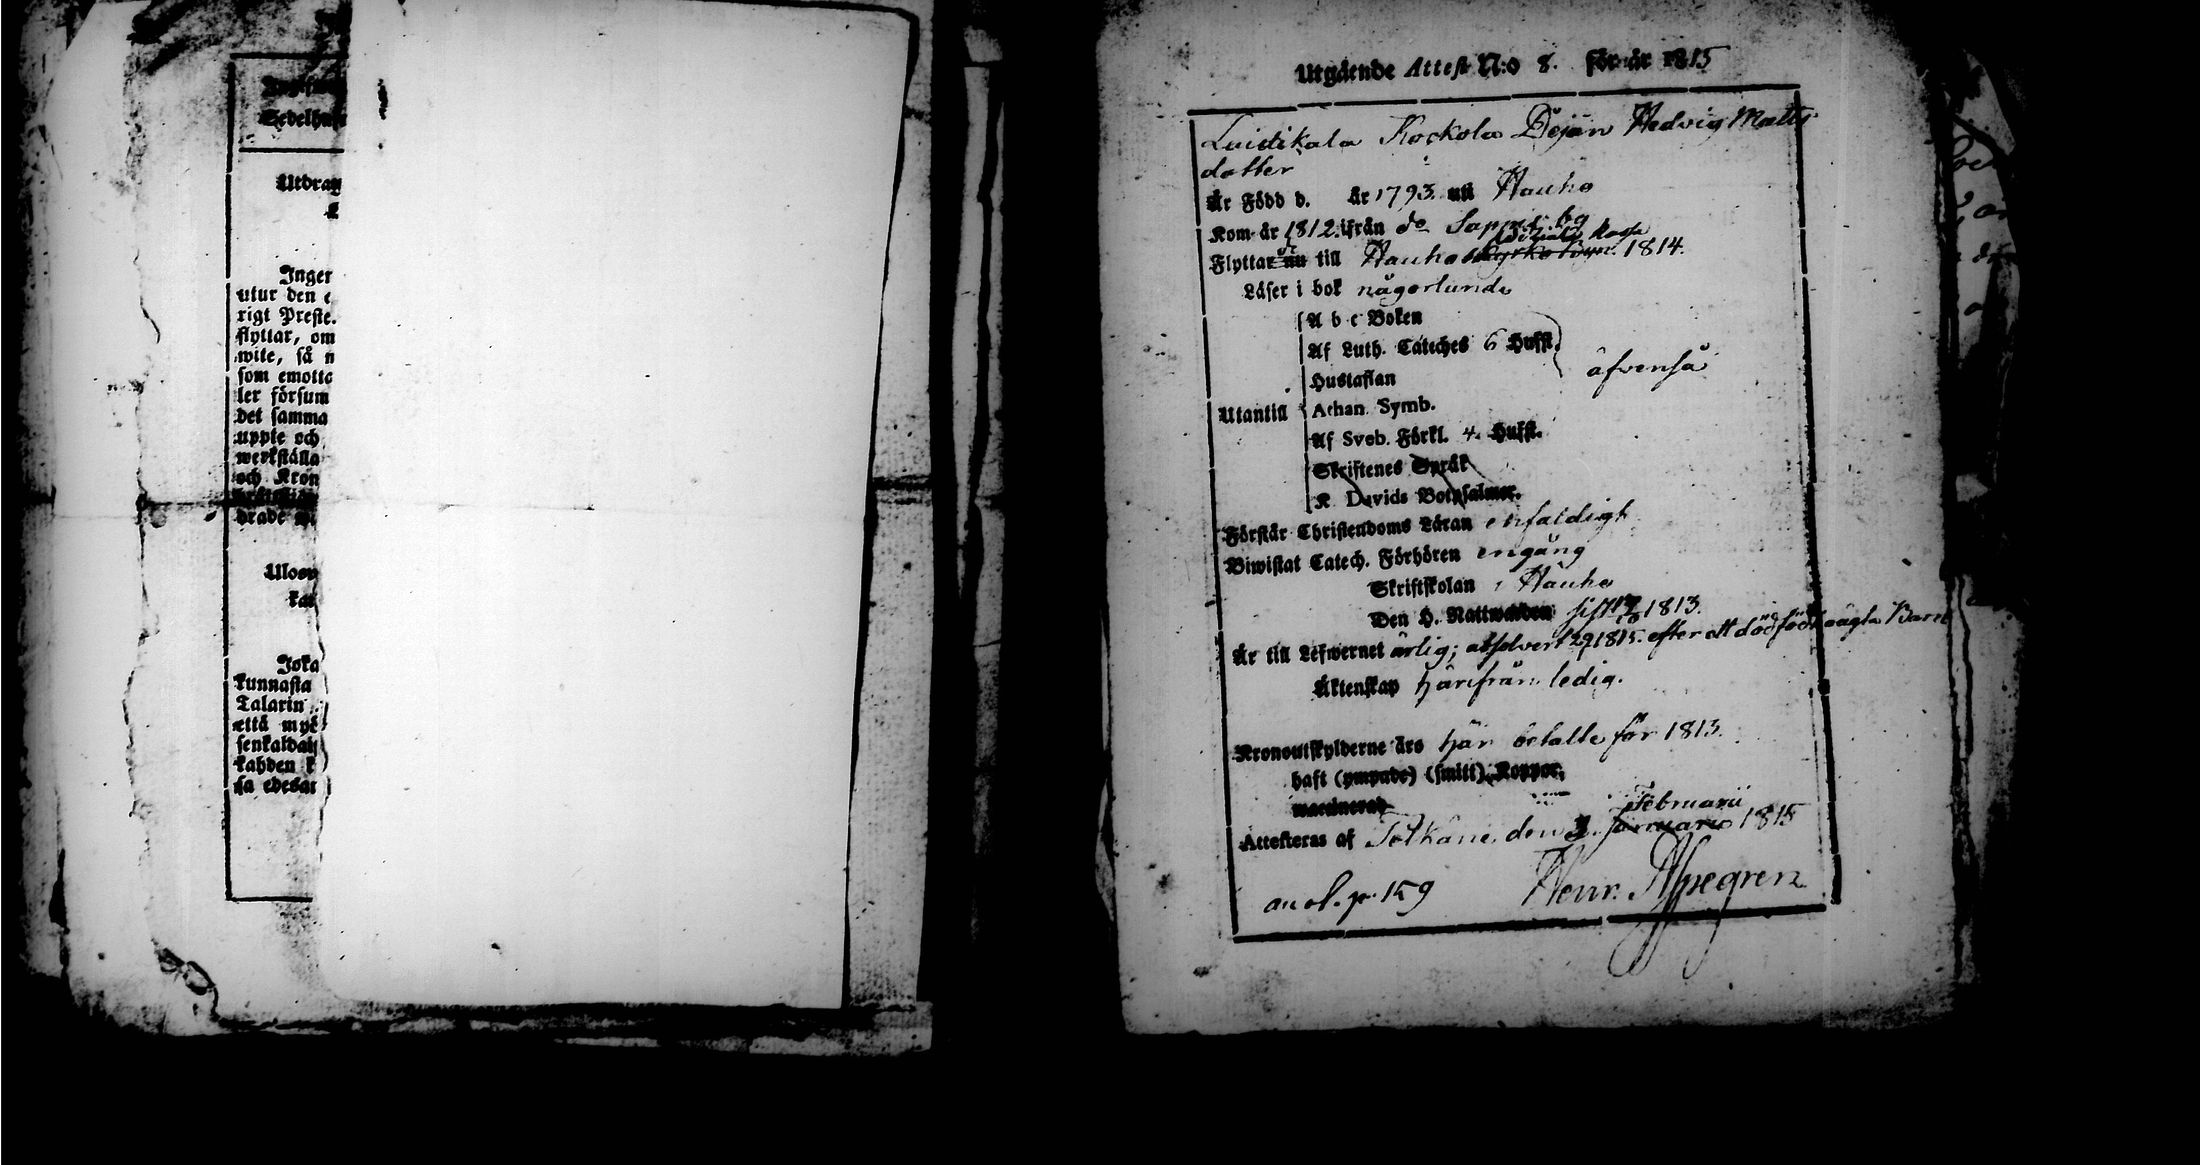 Sedelhaf
Utdrag
Inger
utur den e
rigt Preste.
flyttar, om
wite, så n
som emotta
ler försum
det samma
uppte och
werkställa
och Kron
drade
Joka
kunnasta
Talarin
että myö
senkaldais
kahden k
sa edesau
Utgående Attest N:o 8. för år 1815
Luidikala Kockola Dejan Hedvig Matts
dotter
Är Född d. år 1793. uti Hauho
Kom år 1812. ifrån do Sappi by
Flyttar nu till Hauho 1814.
Läser i bok någorlunda
A b c Boken
Af Luth. Cateches 6 Hufst.
Hustaflan
äfvenså
Utantill Athan. Symb.
Af Sveb. Förkl. 4. Hufst.
Skriftenes Språk
K. Davids Botpsalmer.
Förstår Christendoms Läran enfaldigt
Biwistat Catech. Förhören engång
Skriftskolan i Hauho
Den H. Nattwarden sist 1813.
Är till Lefwernet ärlig; absolvert 1815. efter ett dödfödt oägta Barn
Äktenskap härifrån ledig.
Kronoutskylderne äro här betalte för 1813.
haft (ympade) (smitt) Koppor,
vaccinerad
Februarii
Attesteras af Pelkäne, den Januarii 1815
an ol. p. 159 Henr. Alpegren